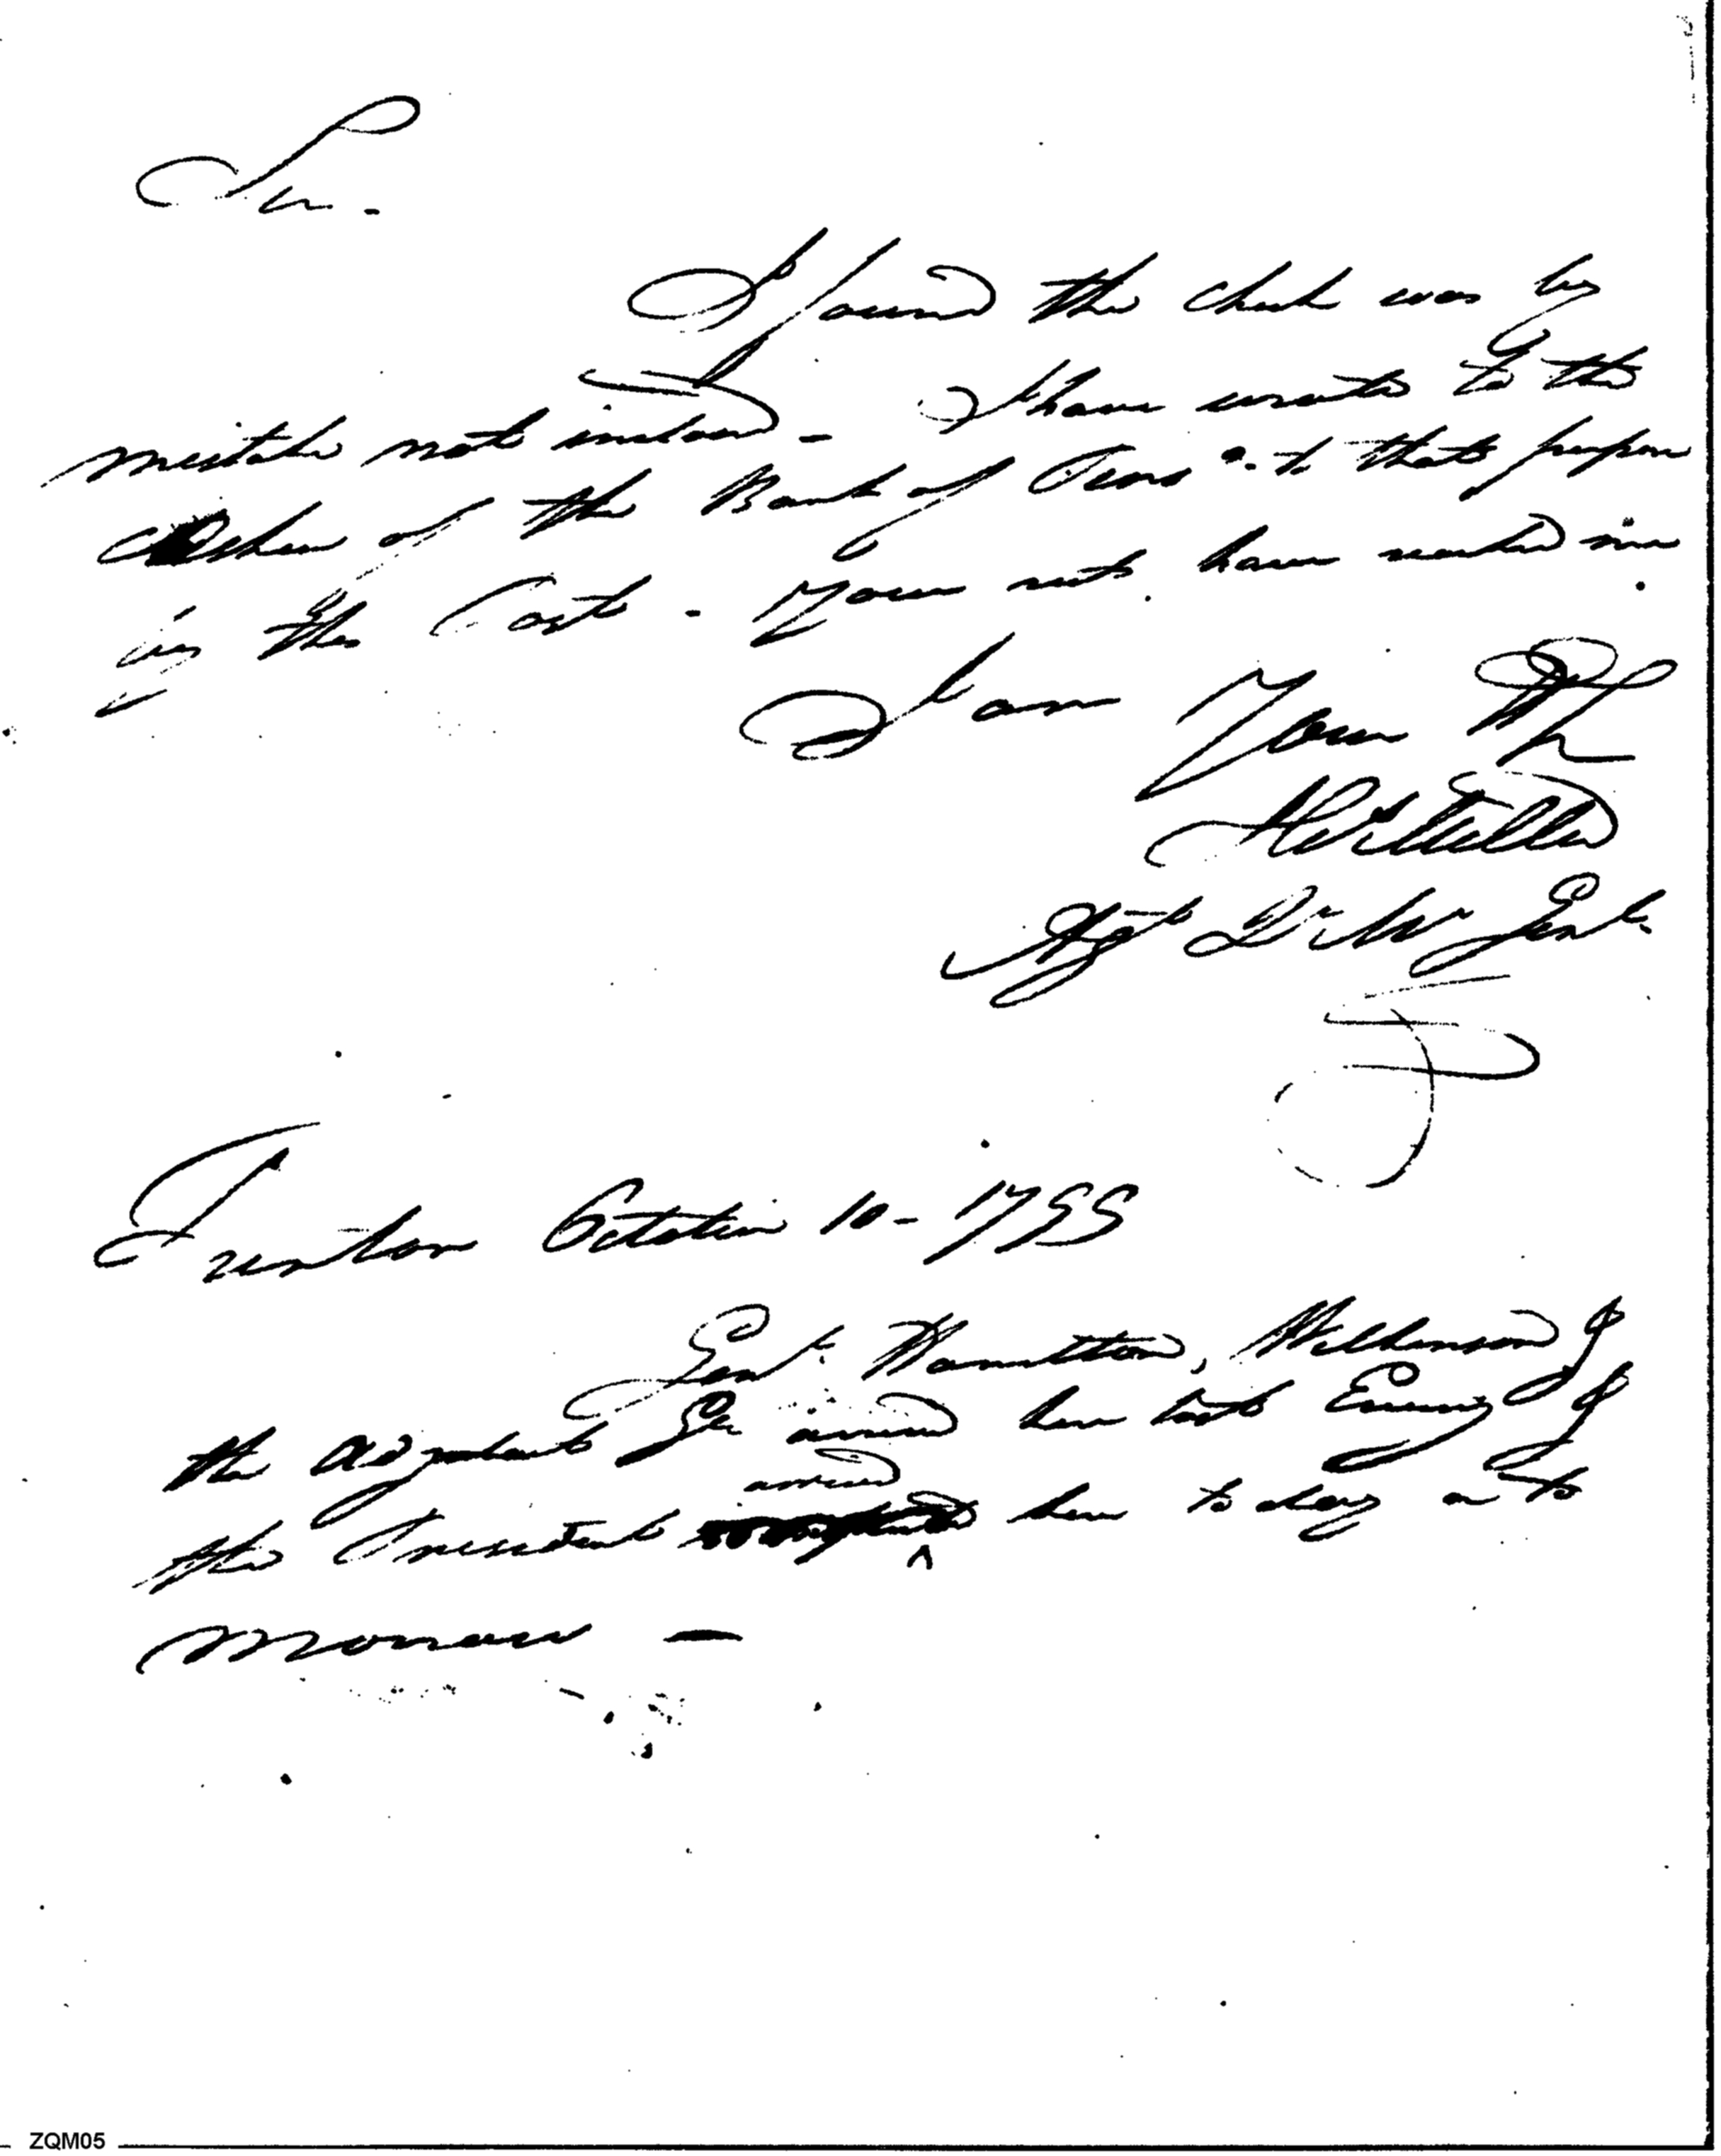 Sir -
I found the check was by
mistake not inclosed - I have wrote to the
Cashier of the Bank of Penns a. to that purpose
by the Post - Yours not have reached me
I am Your
Agt Dr Mr Genl.
Trenton October 10 - 1799
Genl. Hamilton, Wilkinson &
the adjutant Gen arrived here last Evening &
arrived
the President here to day or to
morrow -
ZQM05